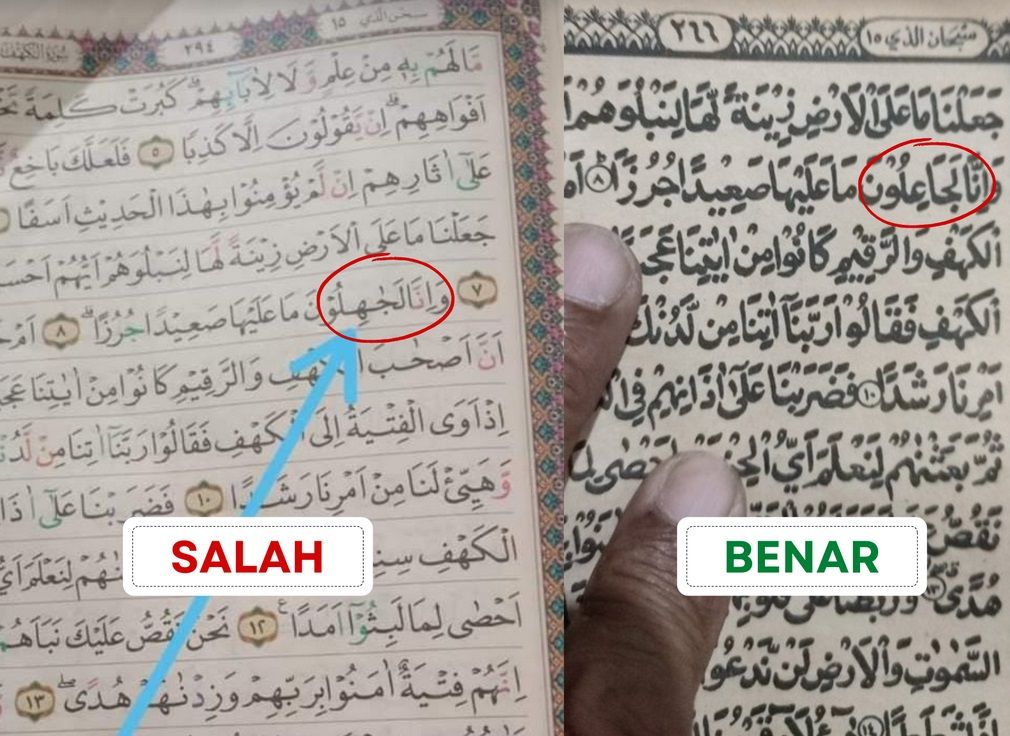 سُوْرَةُ الْكَهْفِ ٢٩٤ سبحن الذي ١٥
مَا لَهُمْ بِهٖ مِنْ عِلْمٍ وَّلَا لِاٰبَاۤىِٕهِمْۗ كَبُرَتْ كَلِمَةً
اَفْوَاهِهِمْۗ اِنْ يَّقُوْلُوْنَ اِلَّا كَذِبًا ٥ فَلَعَلَّكَ بَاخِعٌ
عَلٰٓى اٰثَارِهِمْ اِنْ لَّمْ يُؤْمِنُوْا بِهٰذَا الْحَدِيْثِ اَسَفًا
جَعَلْنَا مَا عَلَى الْاَرْضِ زِيْنَةً لَّهَا لِنَبْلُوَهُمْ اَيُّهُمْ
٧ وَاِنَّا لَجٰهِلُوْنَ مَا عَلَيْهَا صَعِيْدًا جُرُزًاۗ ٨
اَنَّ اَصْحٰبَ الْكَهْفِ وَالرَّقِيْمِ كَانُوْا مِنْ اٰيٰتِنَا
اِذْ اَوَى الْفِتْيَةُ اِلَى الْكَهْفِ فَقَالُوْا رَبَّنَآ اٰتِنَا مِنْ
وَّهَيِّئْ لَنَا مِنْ اَمْرِنَا رَشَدًا ١٠ فَضَرَبْنَا عَلٰٓى
الْكَهْفِ
لِنَعْلَمَ
اَحْصٰى لِمَا لَبِثُوْٓا اَمَدًا ࣖ ١٢ نَحْنُ نَقُصُّ عَلَيْكَ نَبَاَهُمْ
اِنَّهُمْ فِتْيَةٌ اٰمَنُوْا بِرَبِّهِمْ وَزِدْنٰهُمْ هُدًىۖ ١٣
SALAH
٢٦٦ سبحان الذي ١٥
جَعَلْنَا مَا عَلَى الْاَرْضِ زِيْنَةً لَّهَا لِنَبْلُوَهُمْ
وَاِنَّا لَجَاعِلُوْنَ مَا عَلَيْهَا صَعِيْدًا جُرُزًا ٨
الْكَهْفِ وَالرَّقِيْمِ كَانُوْا مِنْ اٰيٰتِنَا عَجَبًا
الْكَهْفِ فَقَالُوْا رَبَّنَآ اٰتِنَا مِنْ لَّدُنْكَ
اَمْرِنَا رَشَدًا ١٠ فَضَرَبْنَا عَلٰٓى اٰذَانِهِمْ فِى
ثُمَّ بَعَثْنٰهُمْ لِنَعْلَمَ اَيُّ
نَقُصُّ
هُدًى
السَّمٰوٰتِ وَالْاَرْضِ لَنْ نَّدْعُوَا
BENAR